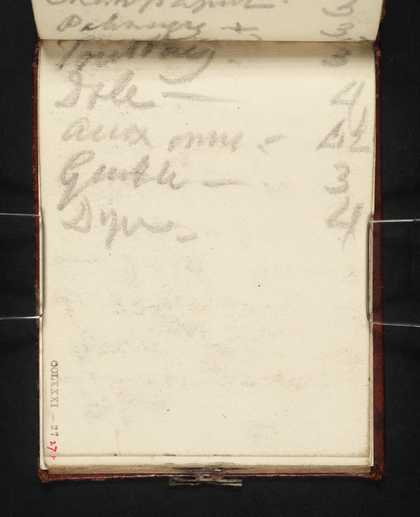 3
3
3
Dole — 4
auxonne - 4½
Genlis — 3
Dijon - 4
CCLXXXI — 27 27